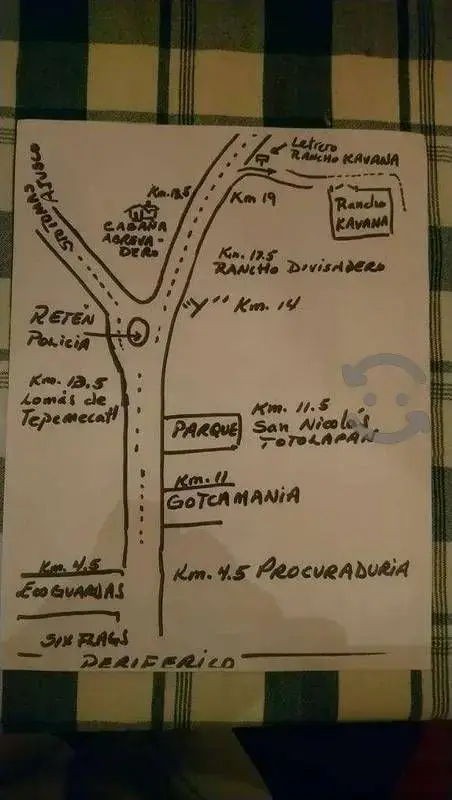 Letrero
RANCHO KAVANA
STO TOMAS
AJUSCO
Km. 18.5
CABAÑA
ABREVA-
DERO
Km 19
Rancho
KAVANA
Km. 17.5
RANCHO DIVISADERO
"Y" Km. 14
RETÉN
POLICIA
Km. 13.5
Lomas de
Tepemecatl
PARQUE
Km. 11.5
San Nicolás
TOTOLAPAN
Km. 11
GOTCAMANIA
Km. 4.5
ECOGUARDAS
Km. 4.5 PROCURADURIA
SIX FLAGS
PERIFERICO